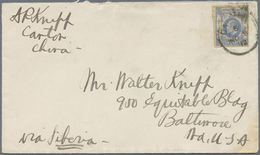 S.P. Kniff
Canton
China
Mr Walter Kniff
900 Equitable Bldg
Baltimore
Md, U.S.A
via Siberia